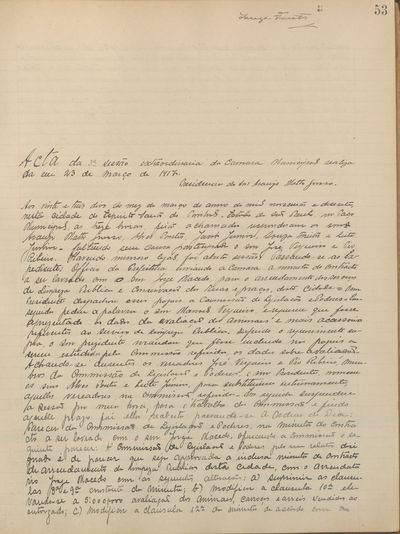 53
Acta da 3ª sessão extraordinaria da Camara Municipal realiza-
da em 23 de Março de 1917.
Presidencia do Snr Araujo Matto Grosso.
Aos vinte e tres dias do mez de março do anno de mil novecentos e dezesete,
nesta cidade de Espirito Santo do Pinhal, Estado de São Paulo no Paço
Municipal, as treze horas, feita a chamada responderam os snrs
Araujo Matto Grosso, Abel Junior, e Leite
Junior e faltando sem causa participada o snr José e
Ribeiro. Havendo numero legal foi aberta sessão. Passando-se ao Ex-
pediente: Officio da Prefeitura enviando a Camara a minuta do contracto
a ser lavrado com o Snr José Macedo, para o arrendamento dos serviços
de Limpeza Publica e Conservação das Ruas e praças desta cidade. O Snr
Presidente despachou esses papeis a Commissão de Legislação e Poderes. Em
seguida pediu a palavra o snr Manoel e requereu que fosse
apresentado os dados da avaliação dos animaes e mais accessorios
pertencentes ao serviço da Limpeza Publica, deferido o requerimento su-
pra, o Snr presidente mandou que fosse incluido nos papeis a
serem estudados pela Commissão referida os dados sobre avaliação.
Achando-se ausentes os vereadores José e Ribeiro, mem-
bros da Commissão de Legislação e Poderes, o snr Presidente nomeou
os snrs Abel e Leite Junior, para substituirem interinamente,
aquelles vereadores na Commissão referida. Em seguida suspendeu-se
a sessão por meia hora, para o trabalho da Commissão e findo
aquelle prazo foi ella reaberta passando-se a Ordem do Dia:
Parecer da Commissão de Legislação e Poderes, na minuta do contra-
cto a ser lavrado com o snr José Macedo, offerecendo a Commissão o se-
guinte parecer: A Commissão de Legislação e Poderes, por seu relator de-
signado é de parecer que seja approvada a inclusa minuta do contracto
de arrendamento da limpeza publica desta cidade, com o arrendata-
rio José Macedo com as seguintes alterações: a) supprimir as clausu-
las 8ª e 9ª constante da Minuta; b) modificar a clausula 10ª ele-
vando-se a 5:000$000 avaliação dos animaes, carroças e arreios vendidos ao
c) Modificar a clausula 12ª da minuta de accordo com a